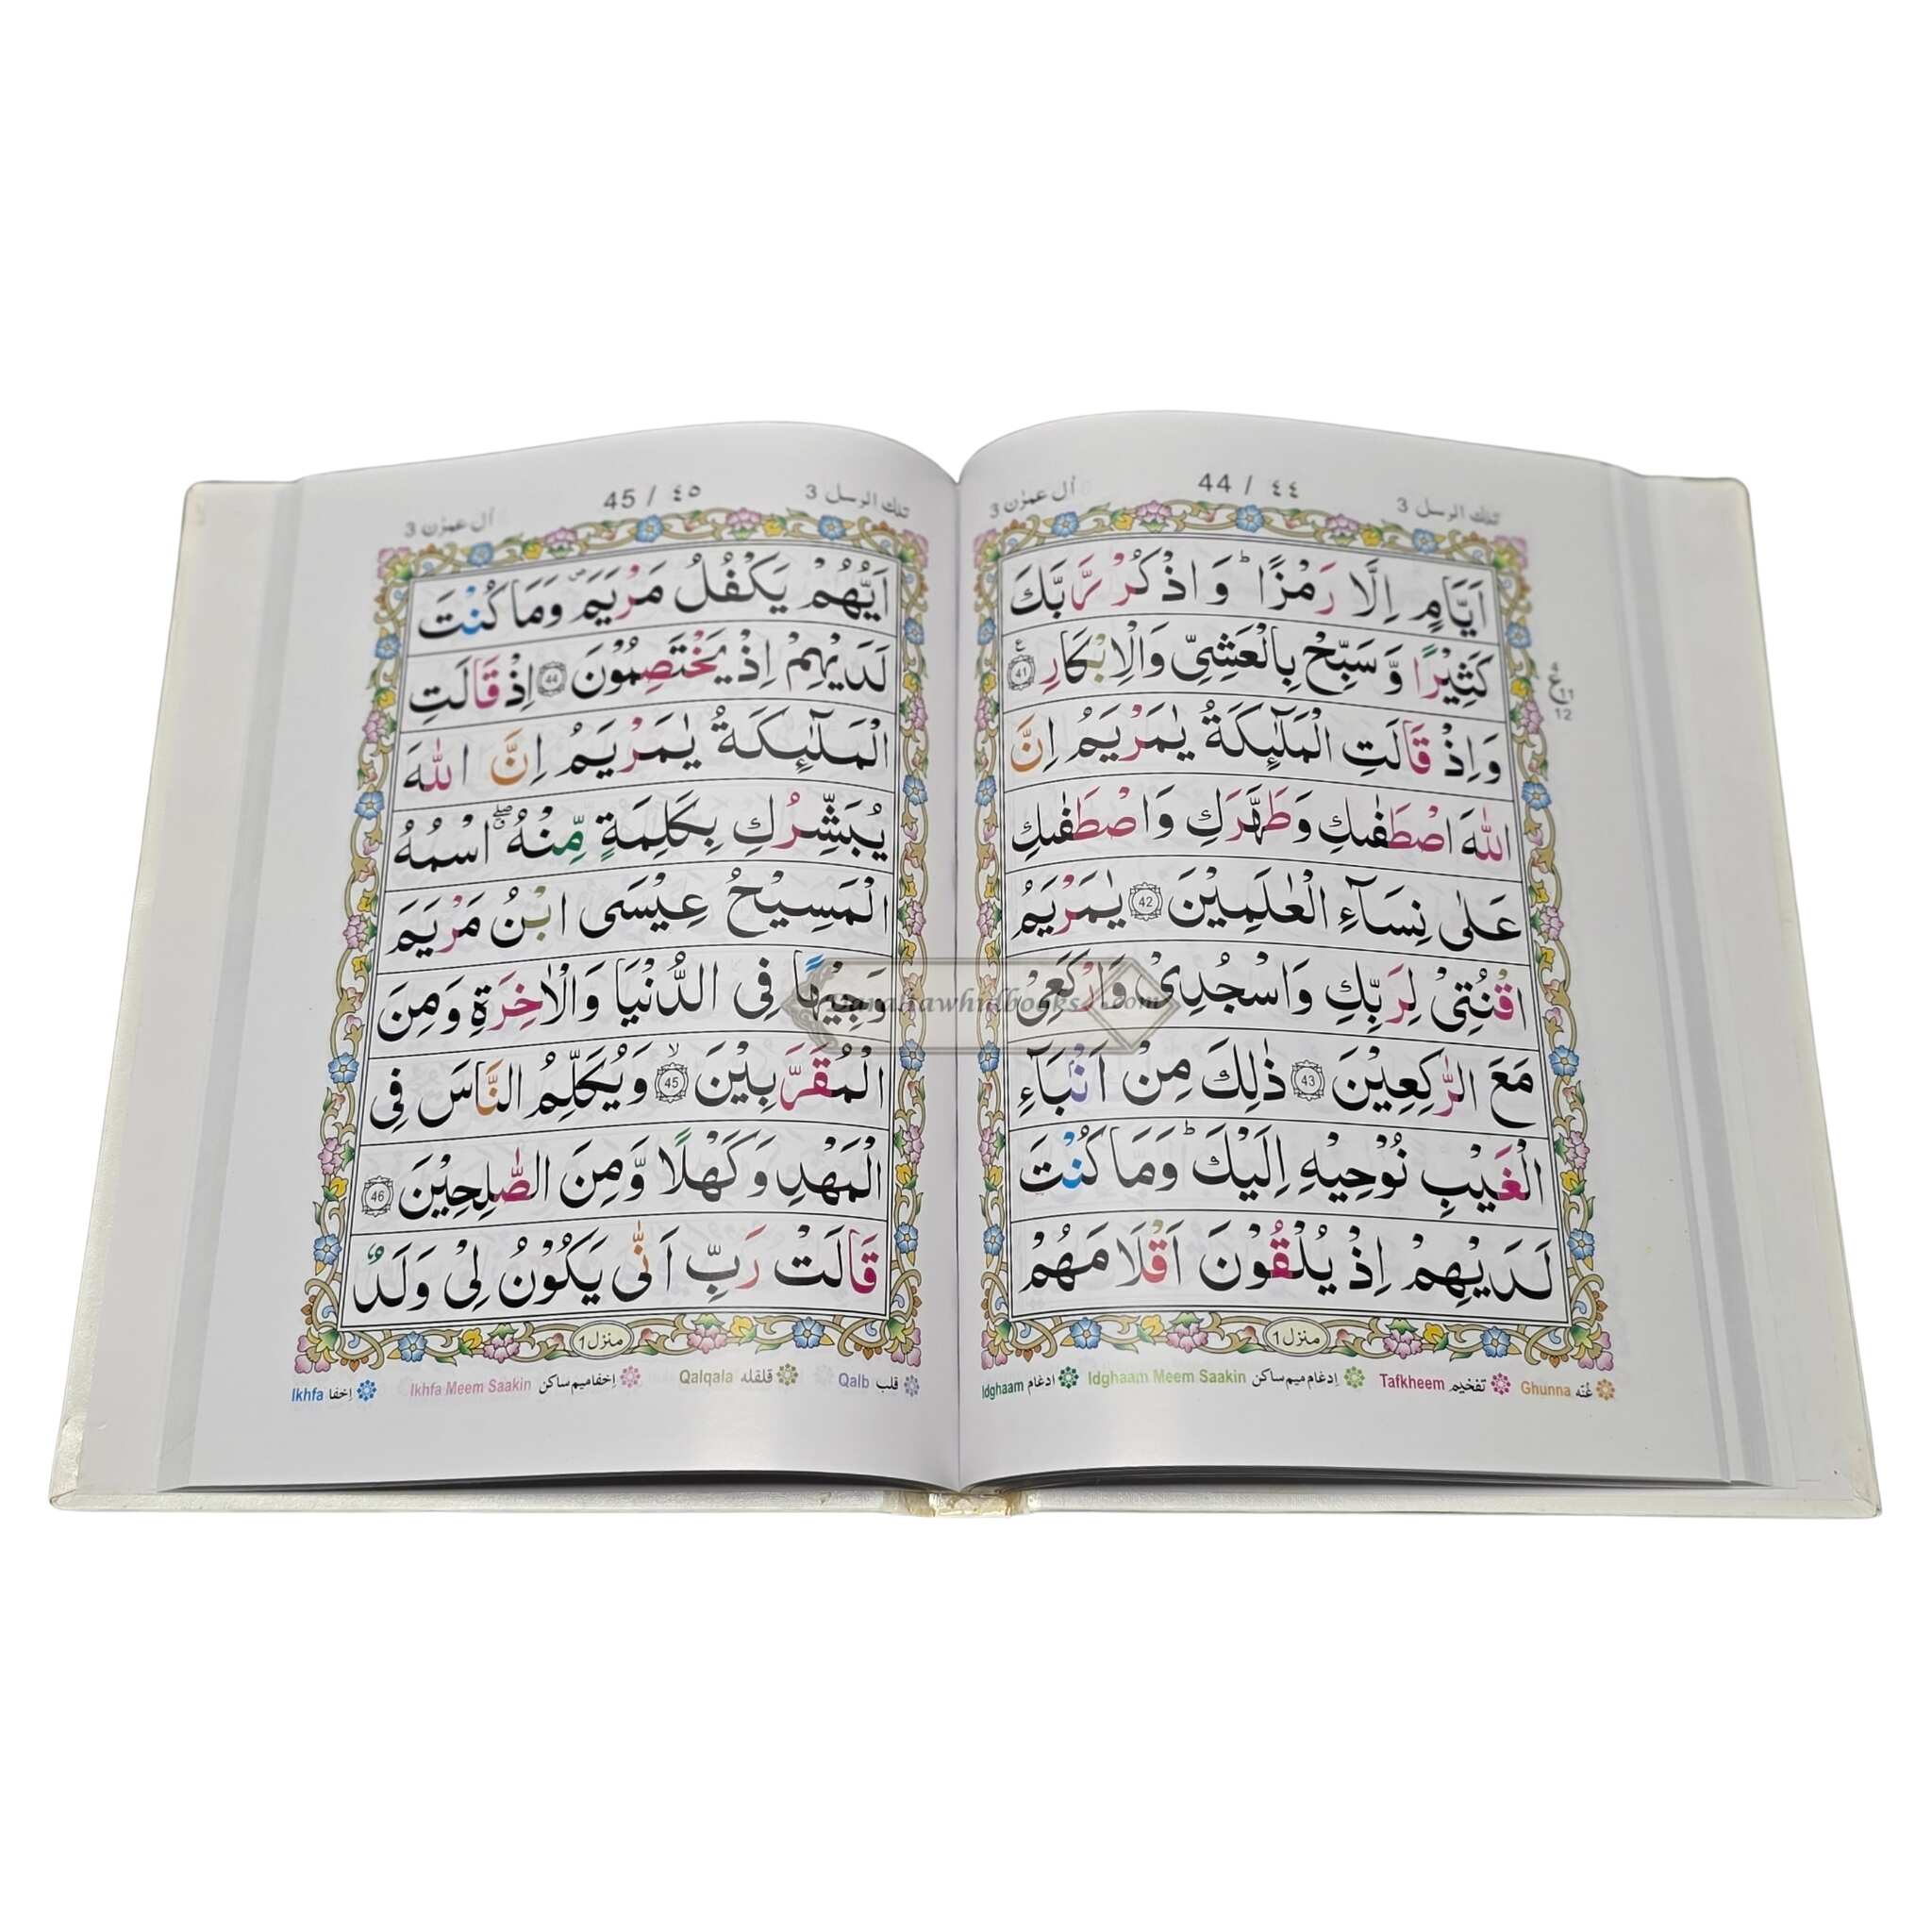 آل عمرٰن 3
44 / ٤٤
تلك الرسل 3
اَيَّامٍ اِلَّا رَمْزًا ؕ وَ اذْكُرْ رَّبَّكَ
كَثِيْرًا وَّ سَبِّحْ بِالْعَشِيِّ وَالْاِبْكَارِ ۧ 41
4
ع 11
12
وَ اِذْ قَالَتِ الْمَلٰٓئِكَةُ يٰمَرْيَمُ اِنَّ
اللّٰهَ اصْطَفٰىكِ وَطَهَّرَكِ وَ اصْطَفٰىكِ
عَلٰى نِسَآءِ الْعٰلَمِيْنَ 42 يٰمَرْيَمُ
اقْنُتِيْ لِرَبِّكِ وَاسْجُدِيْ وَارْكَعِيْ
مَعَ الرّٰكِعِيْنَ 43 ذٰلِكَ مِنْ اَنْۢبَآءِ
الْغَيْبِ نُوْحِيْهِ اِلَيْكَ ؕ وَمَا كُنْتَ
لَدَيْهِمْ اِذْ يُلْقُوْنَ اَقْلَامَهُمْ
منزل 1
Idghaam ادغام Idghaam Meem Saakin اِدغام ميم ساكن Tafkheem تفخيم Ghunna غُنّه
آل عمرٰن 3
45 / ٤٥
تلك الرسل 3
اَيُّهُمْ يَكْفُلُ مَرْيَمَ ۪ وَمَا كُنْتَ
لَدَيْهِمْ اِذْ يَخْتَصِمُوْنَ 44 اِذْ قَالَتِ
الْمَلٰٓئِكَةُ يٰمَرْيَمُ اِنَّ اللّٰهَ
يُبَشِّرُكِ بِكَلِمَةٍ مِّنْهُ ۖۗ اسْمُهُ
الْمَسِيْحُ عِيْسَى ابْنُ مَرْيَمَ
وَجِيْهًا فِى الدُّنْيَا وَالْاٰخِرَةِ وَمِنَ
الْمُقَرَّبِيْنَ ۙ 45 وَيُكَلِّمُ النَّاسَ فِى
الْمَهْدِ وَكَهْلًا وَّمِنَ الصّٰلِحِيْنَ 46
قَالَتْ رَبِّ اَنّٰى يَكُوْنُ لِيْ وَلَدٌ
منزل 1
Ikhfa اِخفا Ikhfa Meem Saakin اِخفا ميم ساكن Qalqala قلقله Qalb قلب